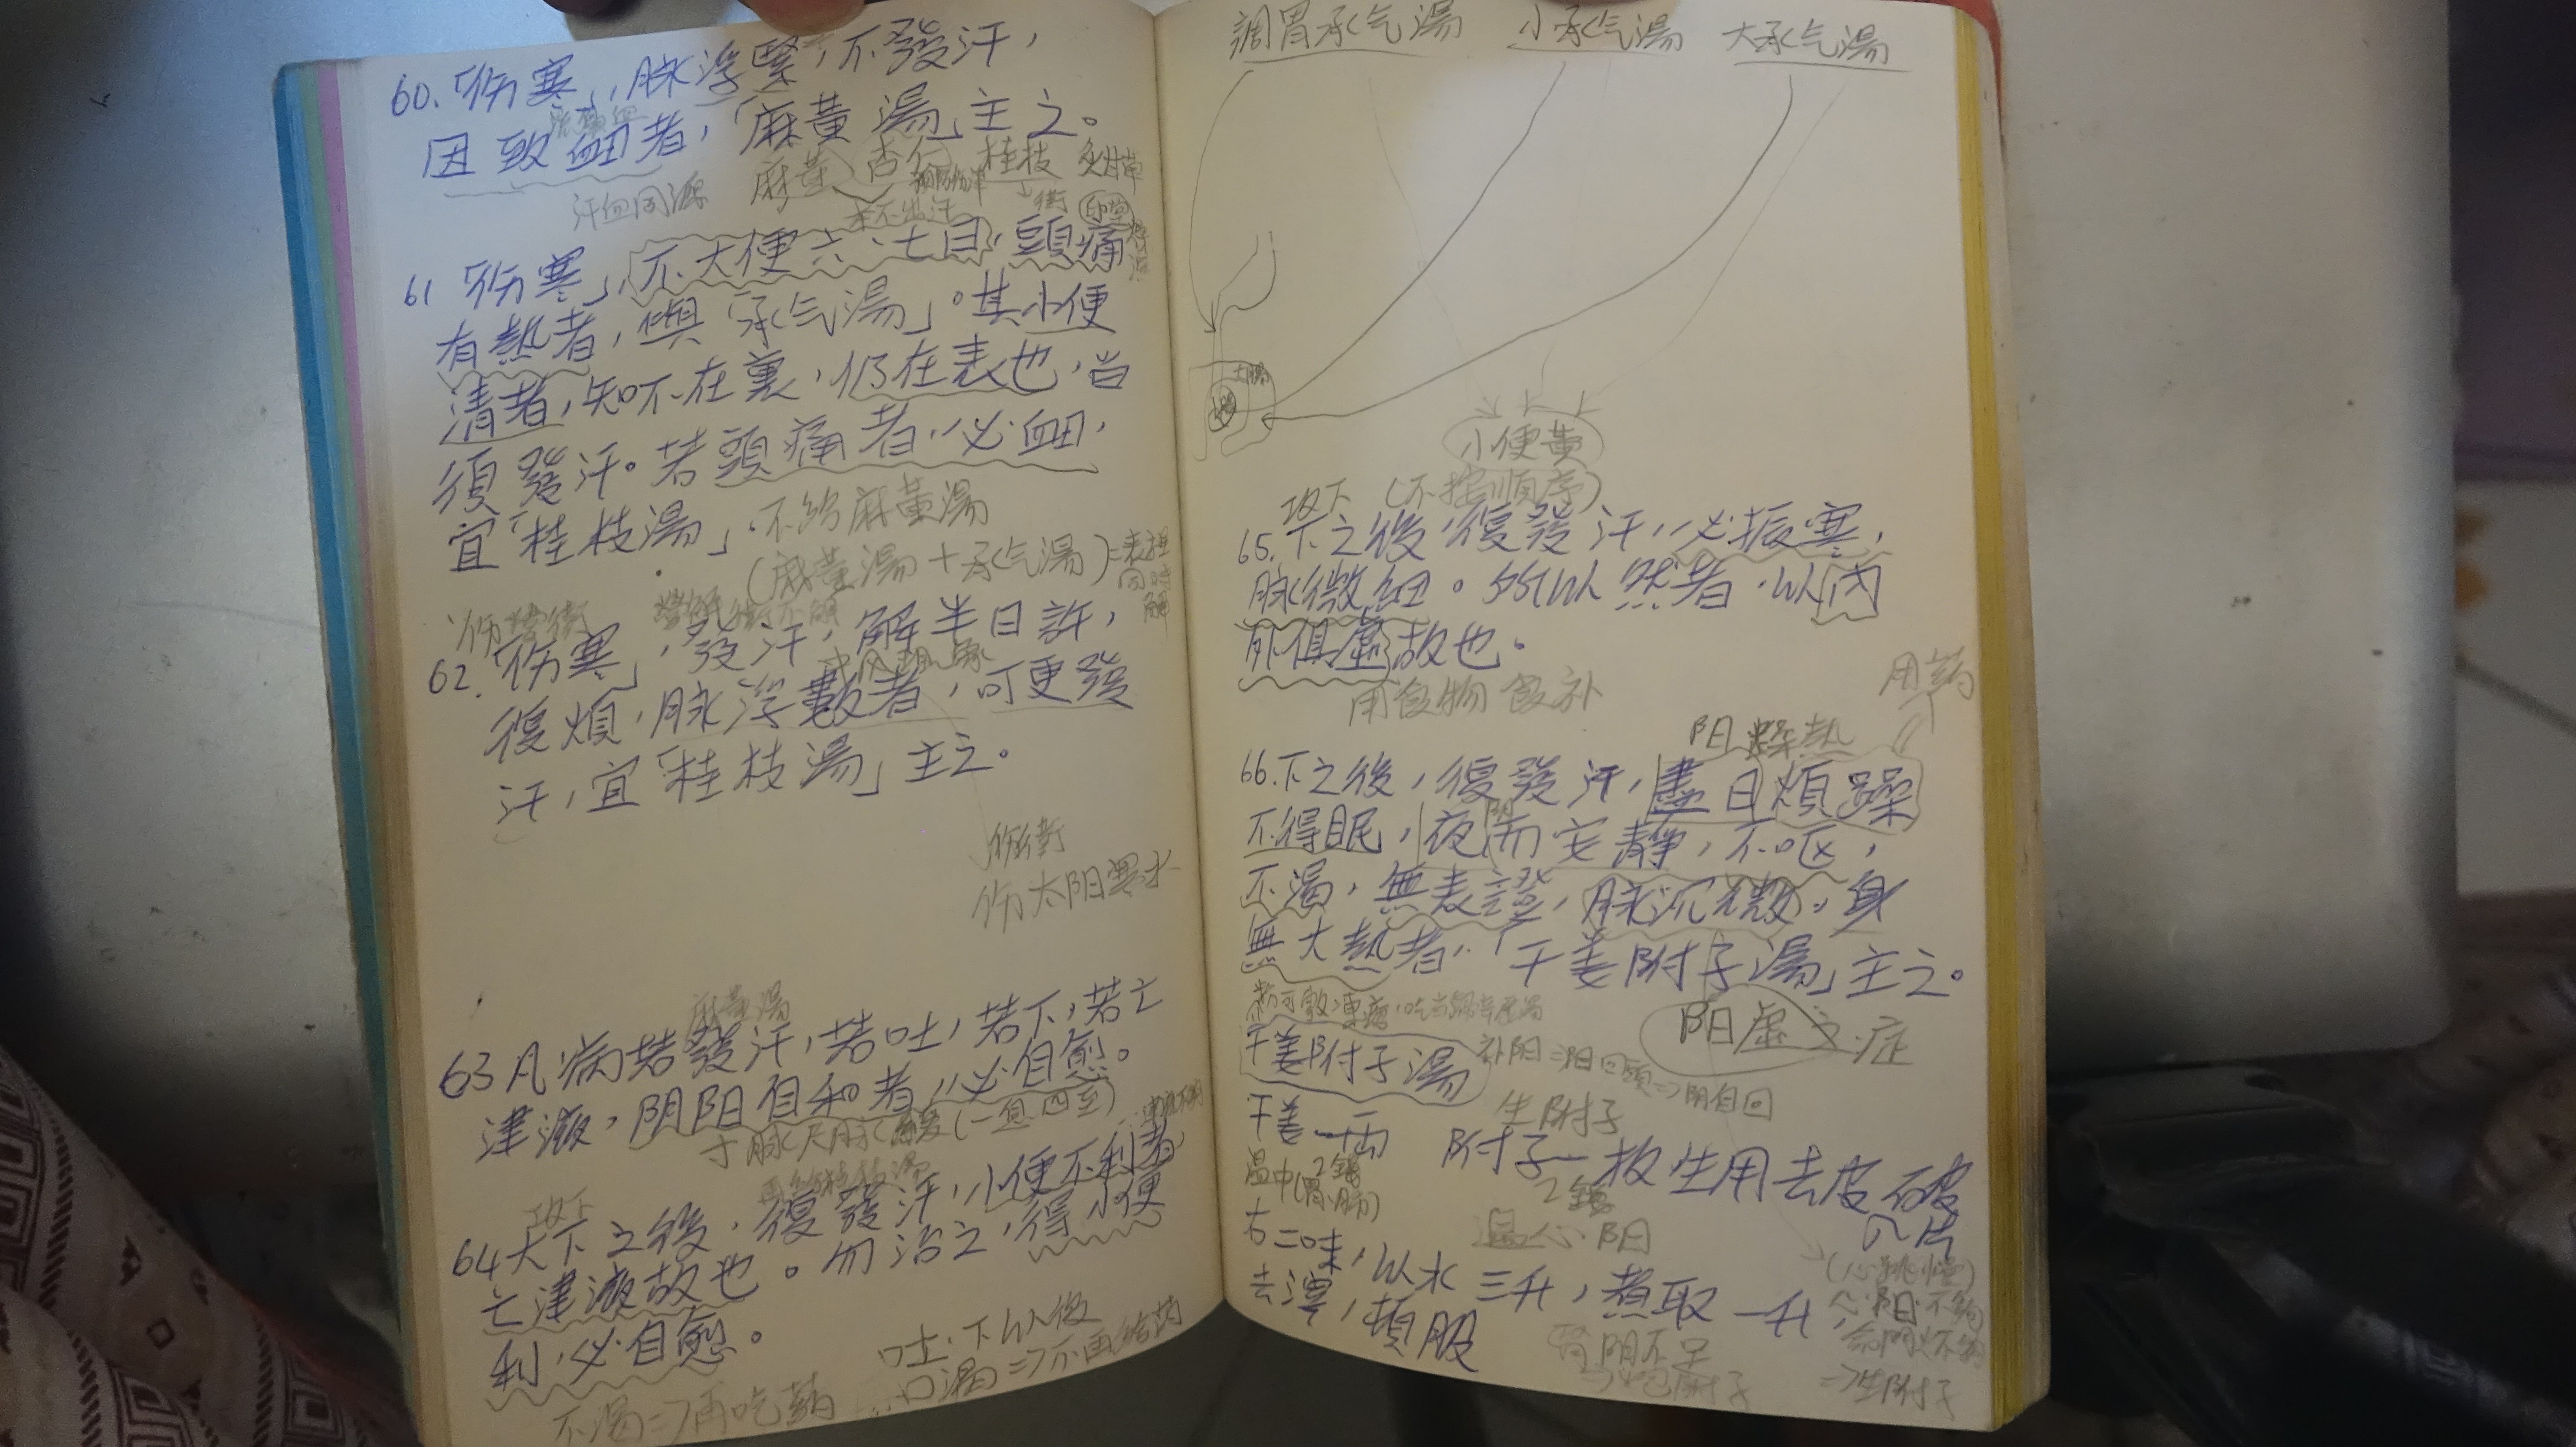 60.「伤寒」,脉浮緊,不發汗,
因致衄者,「麻黃湯」主之。
麻黃 杏仁 桂枝 炙甘草
汗血同源
本不出汗
61「伤寒」,不大便六、七日,頭痛
有熱者,與「承气湯」。其小便
清者,知不在裏,仍在表也,当
須發汗。若頭痛者,必衄,
宜「桂枝湯」.不給麻黃湯
(麻黃湯+承气湯)=表裡
同時
解
伤營衛
62.「伤寒」,發汗,解半日許,
復煩,脉浮數者,可更發
汗,宜「桂枝湯」主之。
伤衛
伤太阳寒水
麻黃湯
63凡病若發汗,若吐,若下,若亡
津液,阴阳自和者,必自愈。
寸脉尺脉緩(一息四至)
再給桂枝湯
攻下
64大下之後,復發汗,小便不利者
亡津液故也。勿治之,得小便
利,必自愈。
吐.下以後
口渴=>不再給药
不渴=>再吃药
調胃承气湯 小承气湯 大承气湯
大腸
小便黄
攻下 (不按順序)
65.下之後,復發汗,必振寒,
脉微細。所以然者,以内
外俱虛故也。
用食物食补
用药
阳 燥热
66.下之後,復發汗,晝日煩躁
不得眠,夜而安靜,不呕,
不渴,無表證,脉沉微,身
無大熱者,「干姜附子湯」主之。
阳虛之症
干姜附子湯
补阳=阳回頭=>阴自回
生附子
干姜一兩 附子一枚生用去皮破
八片
2錢
2錢
温中(胃、肺)
温心阳
右二味,以水三升,煮取一升,
去滓,頓服
(心跳慢)
心阳不夠
命門火不夠
=>生附子
腎阴不足